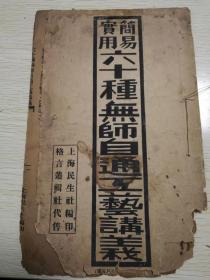 簡易
實用
六十種無師自通工藝講義
上海民生社編印
格言叢輯社代售